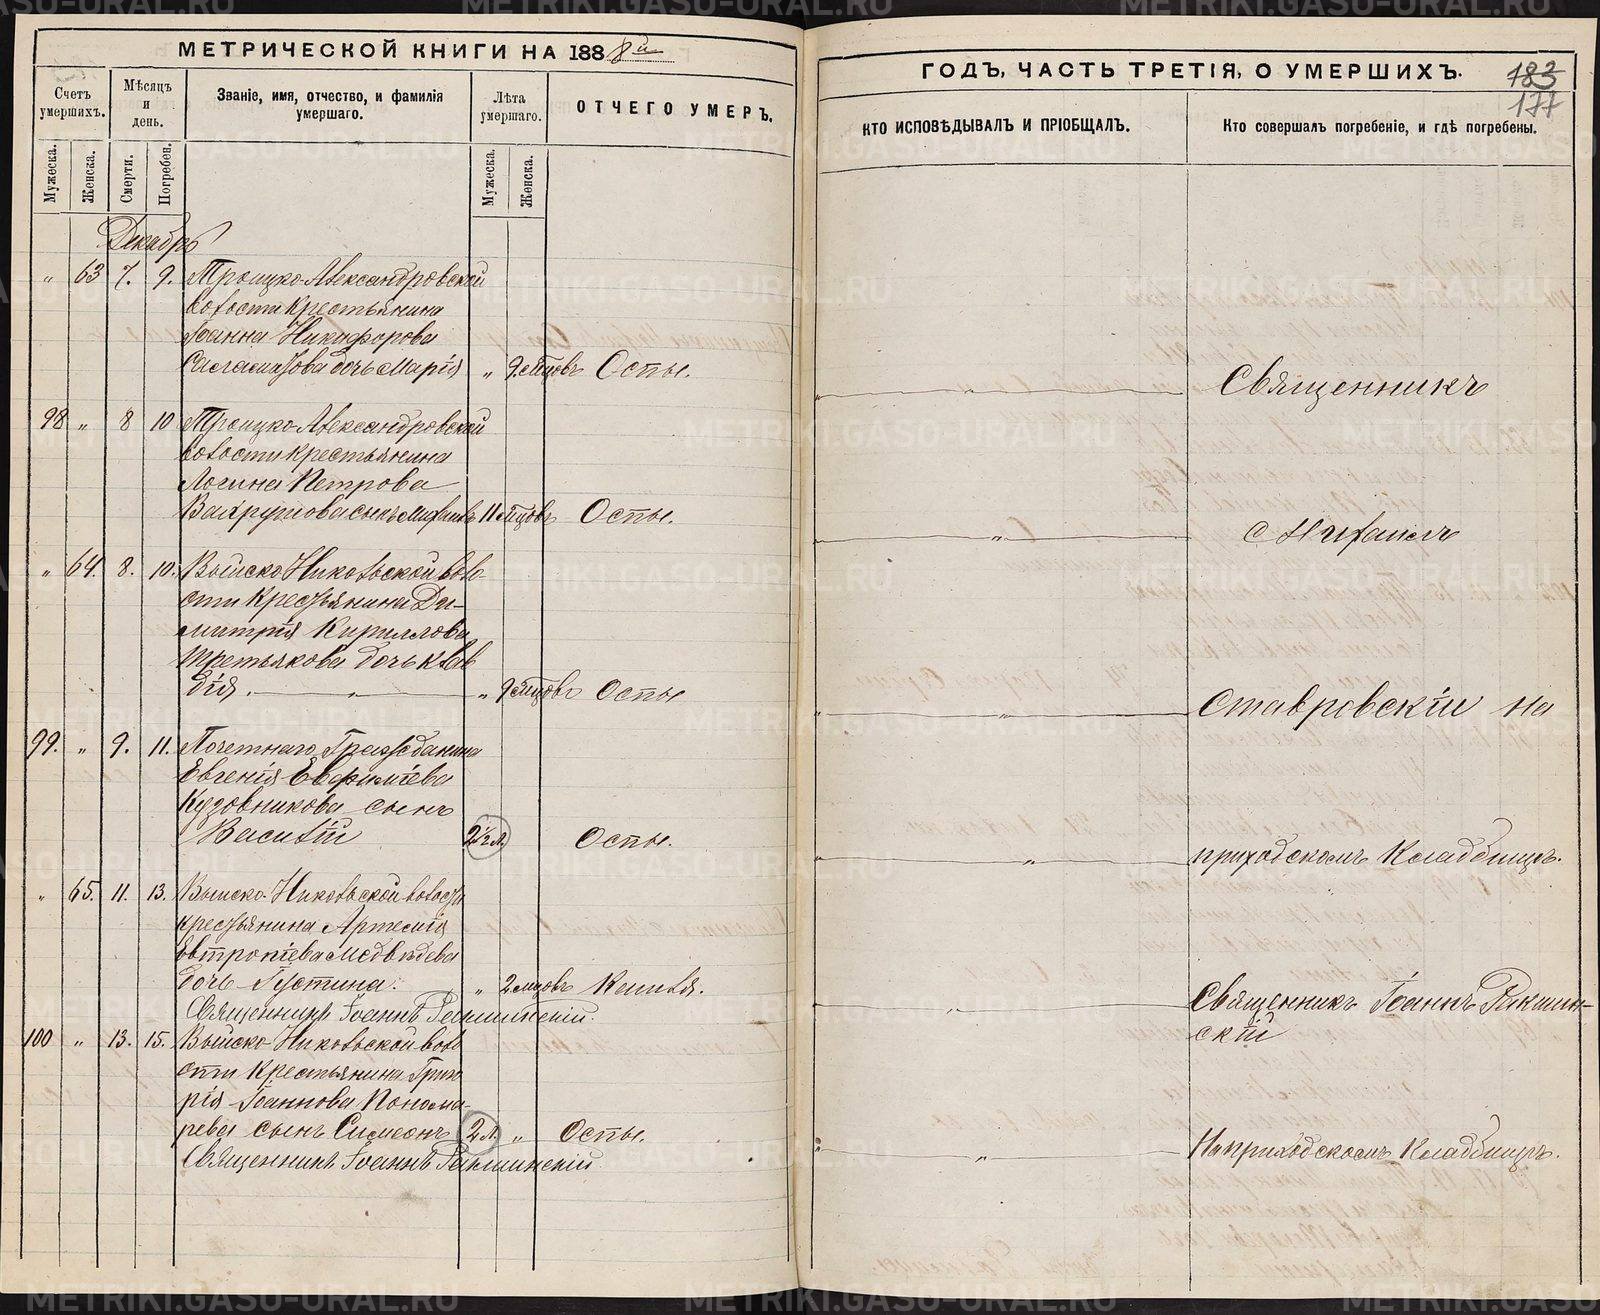 МЕТРИЧЕСКОЙ КНИГИ НА 1888й
ГОДЪ, ЧАСТЬ ТРЕТІЯ, О УМЕРШИХЪ.
183
177
Счетъ умершихъ.
Мѣсяцъ и день.
Званіе, имя, отчество, и фамилія умершаго.
Лѣта умершаго.
ОТЧЕГО УМЕРЪ.
КТО ИСПОВѢДЫВАЛЪ И ПРІОБЩАЛЪ.
Кто совершалъ погребеніе, и гдѣ погребены.
Мужеска.
Женска.
Смерти.
Погребен.
Мужеска.
Женска.
Декабрь
„ 63 7. 9. Троицко-Александровской
волости крестьянина
Іоанна Никифорова
дочь Марія „ 9 мѣцовъ Оспы.
Священникъ
98 „ 8 10 Троицко-Александровской
волости крестьянина
Логина Петрова
Вахрушова сынъ Михаилъ 11 мѣцовъ Оспы.
Михаилъ
„ 64. 8. 10. Выйско-Николькой воло-
сти крестьянина Ди-
митрія Кириллова
Третьякова дочь Клав
дія. „ „ 9 мѣцовъ Оспы
Ставровскій на
99. „ 9. 11. Почетнаго Гражданина
Евгенія Евфиміева
Кузовникова сынъ
Василій 2½ л. Оспы.
приходскомъ Кладбищѣ.
„ 65. 11. 13. Выйско-Никольской волости
крестьянина Артемія
Евтропіева Медвѣдева
дочь Іустина. „ 2 мѣцовъ Кашля.
Священникъ Іоаннъ Ракшинскій.
Священникъ Іоаннъ Ракшин-
скій
100 „ 13. 15. Выйско-Никольской воло
сти крестьянина Григо
рія Іоаннова Понома-
рева сынъ Симеонъ 2 л. „ Оспы.
На приходскомъ Кладбищѣ.
Священникъ Іоаннъ Ракшинскій.
METRIKI.GASO-URAL.RU